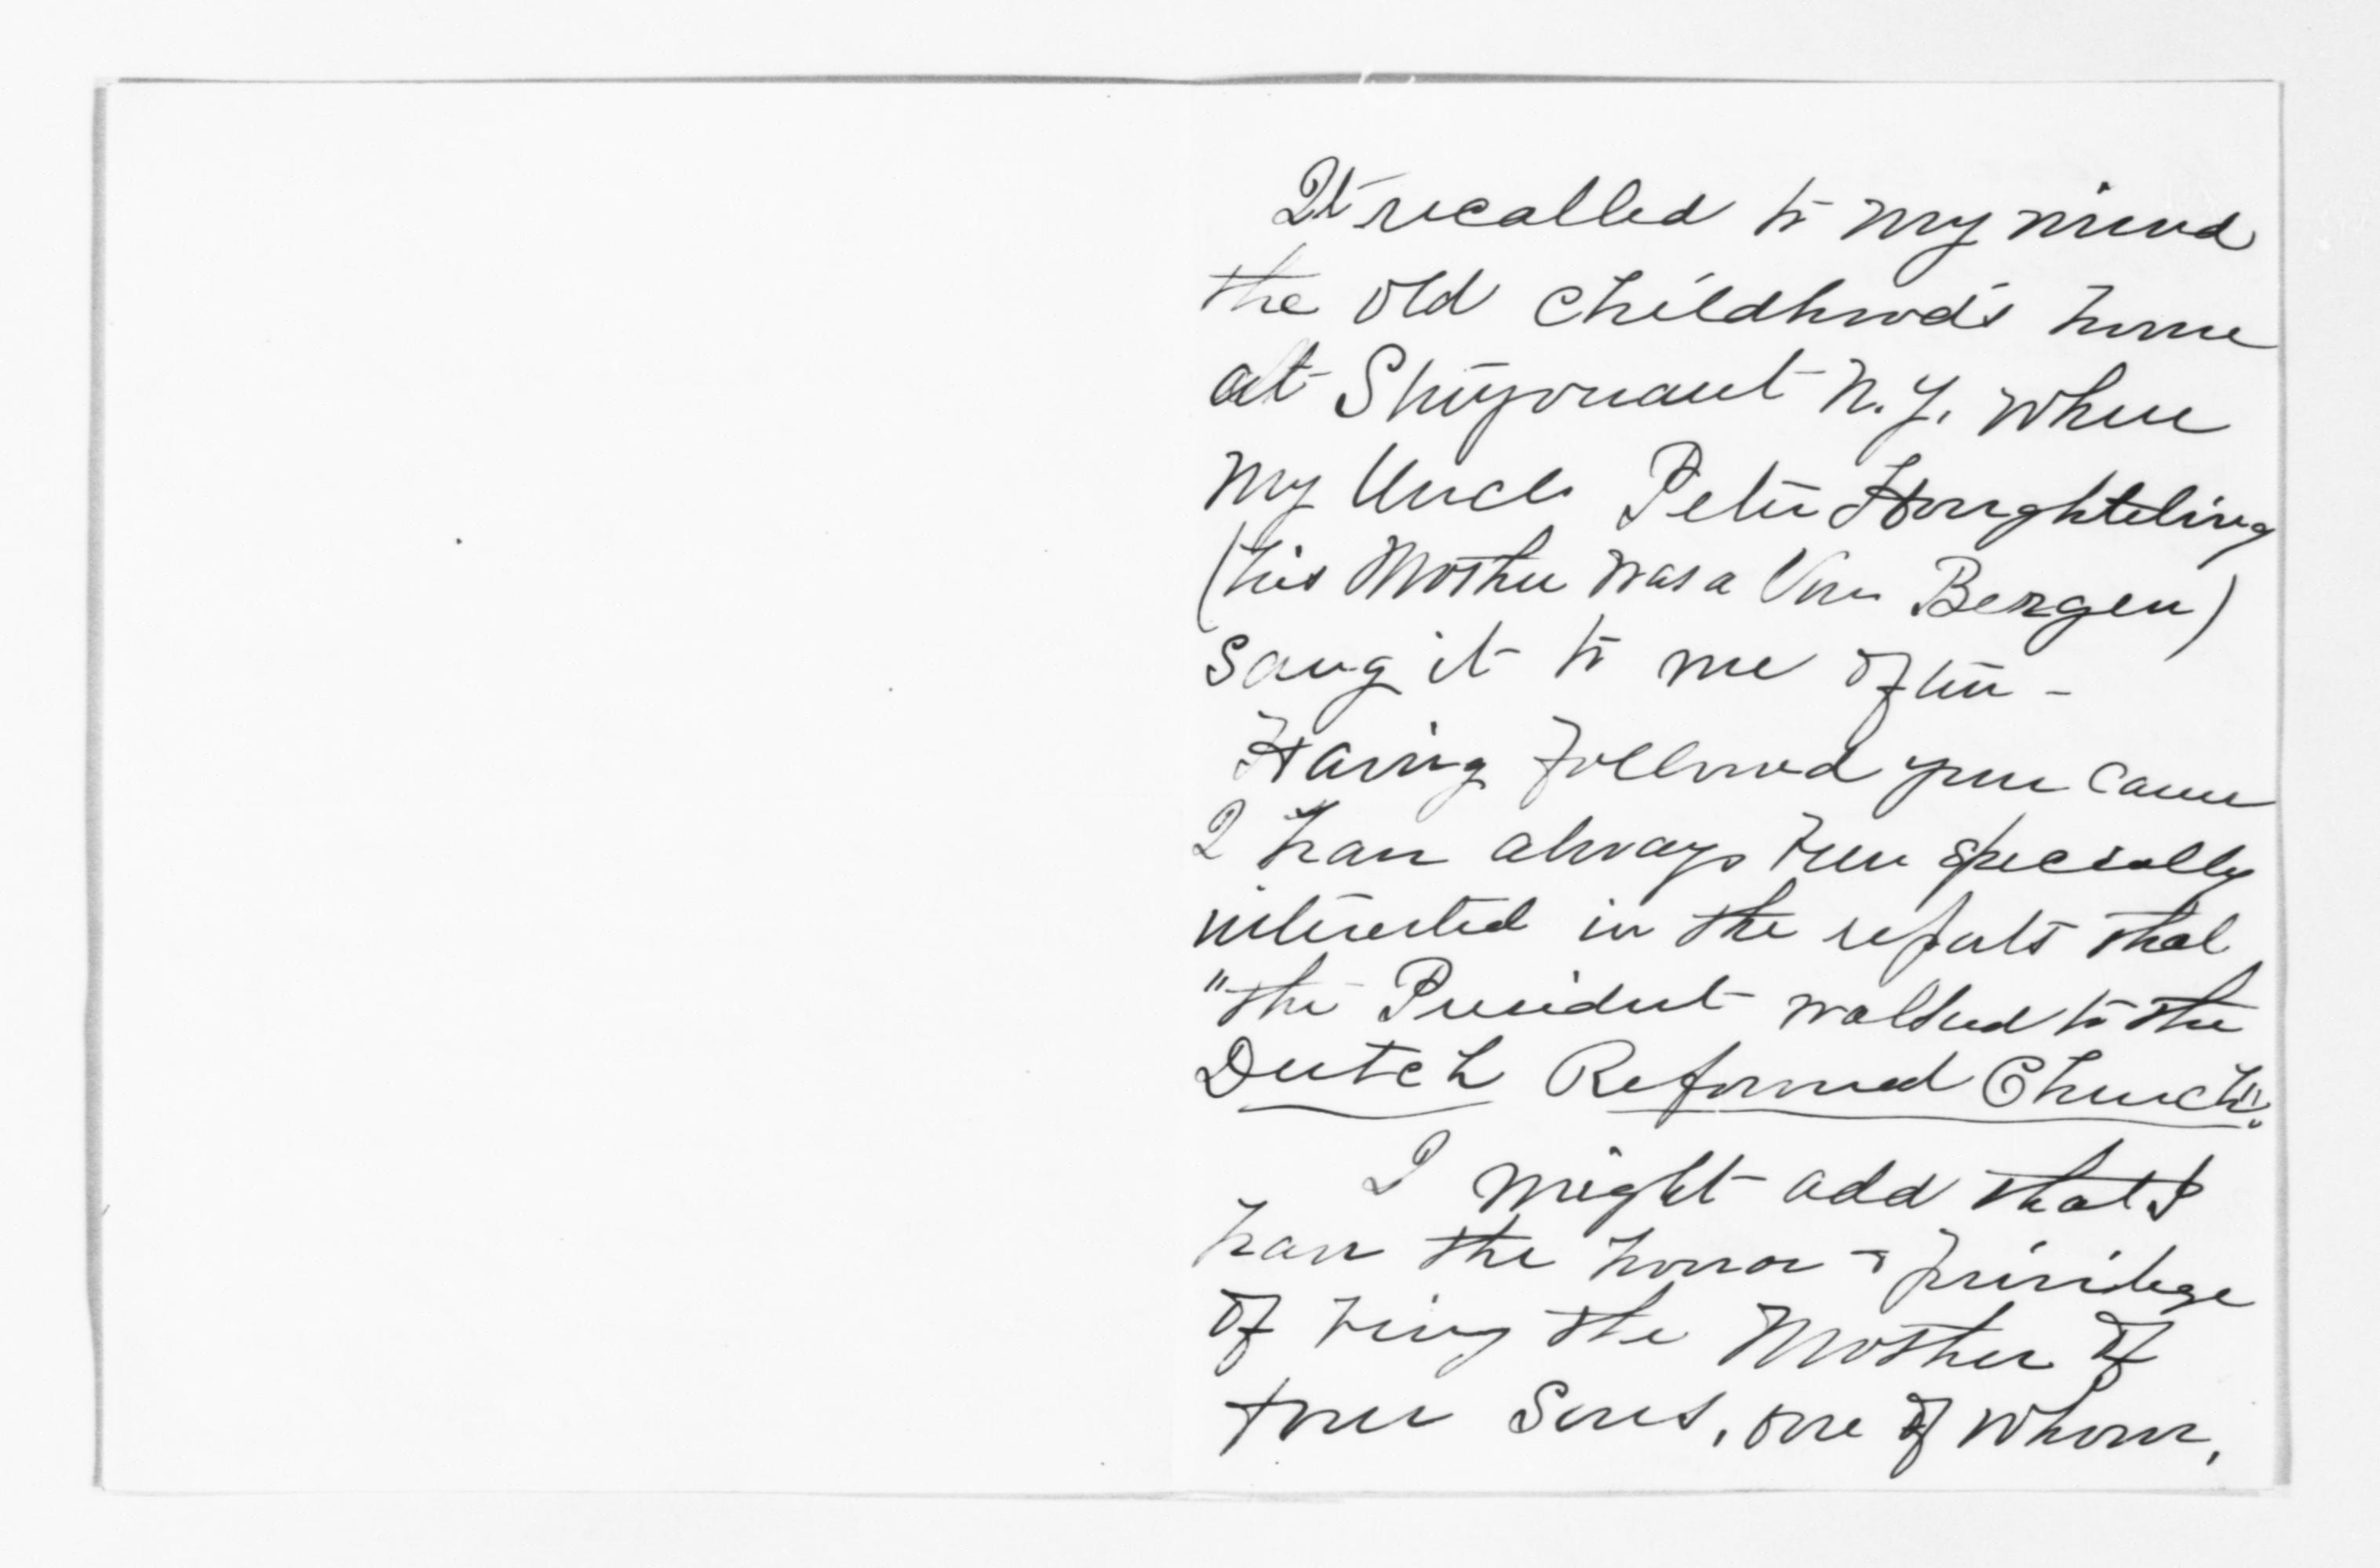 It recalled to my mind
the old childhood's home
at Stuyvesant N.Y. where
my Uncle Peter Houghteling
(his Mother was a Van Bergen)
sang it to me often -
Having followed your career
I have always been specially
interested in the reports that
"the President walked to the
Dutch Reformed Church".
I might add that I
have the honor & privilege
of being the Mother of
four Sons, one of whom,